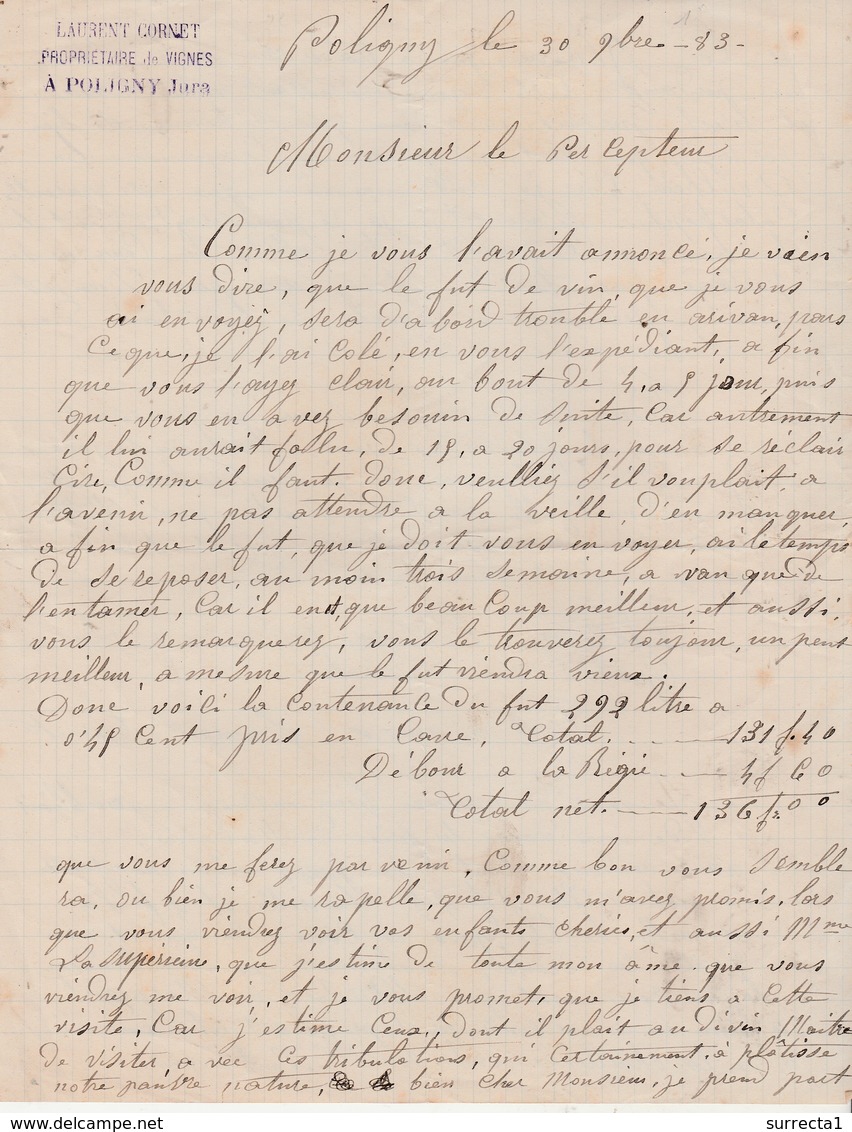 LAURENT CORNET
PROPRIÉTAIRE de VIGNES
À POLIGNY Jura
Poligny le 30 9bre - 83 -
Monsieur le Percepteur
Comme je vous l'avait annoncé, je vien
vous dire, que le fut de vin, que je vous
ai en voyez, sera d'a bord trouble en arivan, pars
ce que, je l'ai colé, en vous l'expédiant, a fin
que vous l'ayez clair, au bout de 4, a 5 jour, puis
que vous en a vez besouin de suite, Car autrement
il lui aurait falu, de 15, a 20 jours, pour se réclair
cire, Comme il faut. donc, veulliez s'il vouplait, a
l'avenir, ne pas attendre a la veille, d'en manquer,
a fin que le fut, que je doit vous en voyer, ai le temps
de se reposer, au moin trois semaine, a van que de
l'entamer, Car il en est, que beau Coup meilleur, et aussi,
vous le remarquerez, vous le trouverez toujour, un peut
meilleur, a mesure que le fut viendra vieux.
Donc voici la Contenance du fut 292 litre a
0'45 Cent pris en Cave, Total. 131 f. 40
Débour a la Régie 4 f 60
Total net. 136 fr. 00
que vous me ferez par venir, Comme bon vous semble
ra, ou bien je me rapelle, que vous m'avez promis, lors
que vous viendrez voir vos enfants cheries, et aussi Mme
La supérieure, que j'estime de toute mon âme. que vous
viendrez me voir, et je vous promet, que je tiens a cette
visite, Car j'estime Ceux, dont il plait au divin Maitre
de visiter, a vec ces tribulations, qui certainement, a plâtisse
notre pauvre nature, bien cher Monsieur, je prend part
surrecta1